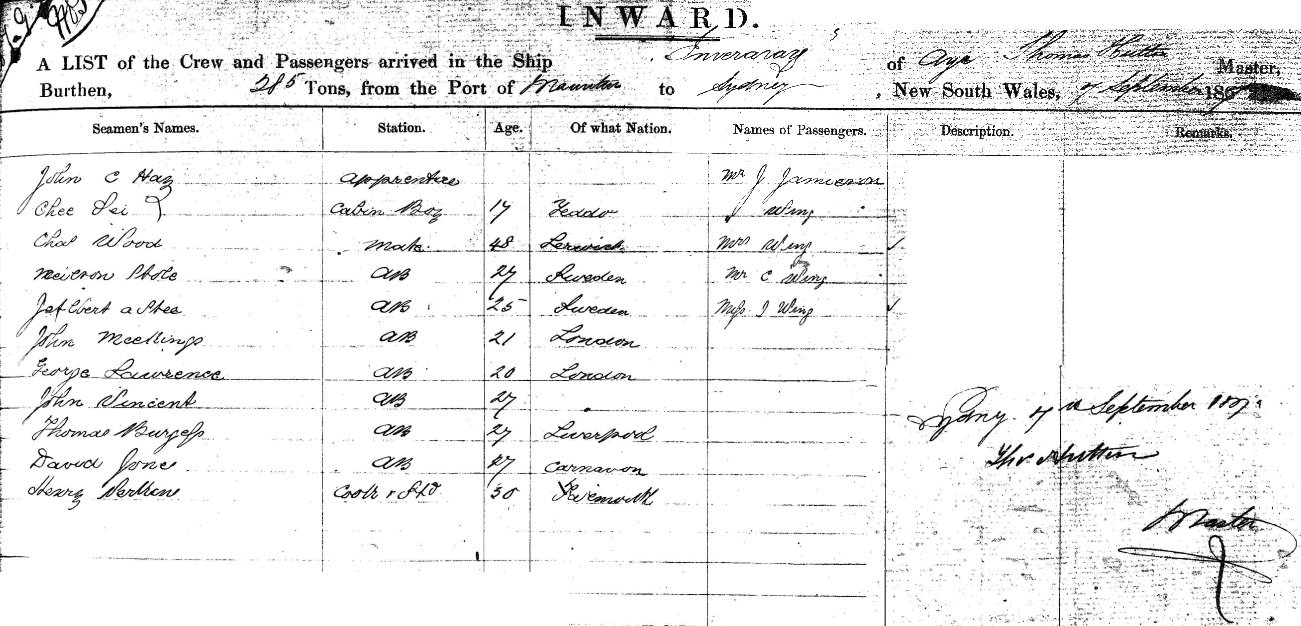 INWARD.
A LIST of the Crew and Passengers arrived in the Ship Inveraray of Ayr Thomas Master,
Burthen, 285 Tons, from the Port of to Sydney, New South Wales, 7 September 186
Seamen's Names. Station. Age. Of what Nation. Names of Passengers. Description. Remarks.
John C Hay apprentice Mr J Jamieson
Chee Cabin Boy 17 Yeddo Wing
Chas Wood Mate 48 Lerwick Mrs Wing
AB 27 Sweden Mr C Wing
AB 25 Sweden Miss J Wing
John Meellings AB 21 London
George Lawrence AB 20 London
John Vincent AB 27
Thomas Burgess AB 27 Liverpool
David Jone AB 27 Carnavon
Henry Cook & Std 30
Sydny 7th September
Master